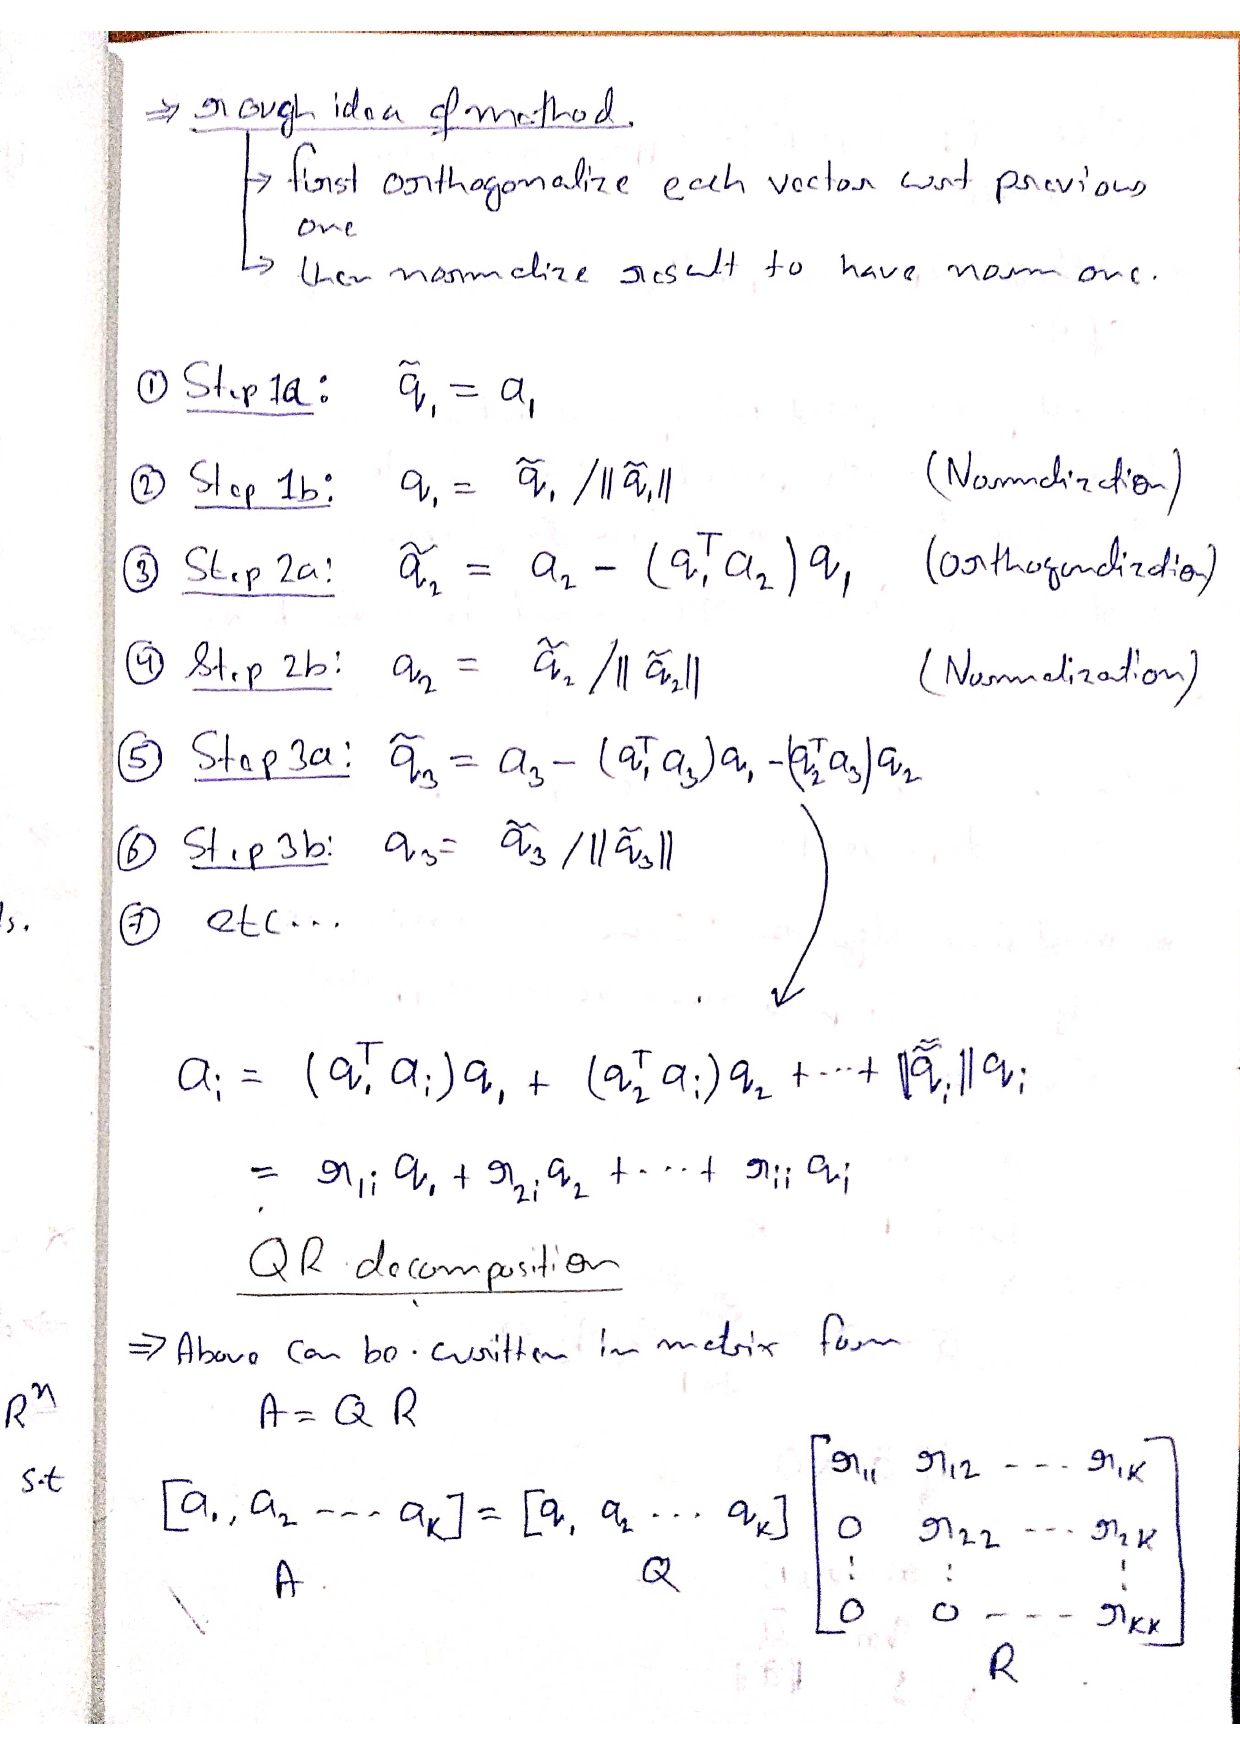 ⇒ rough idea of method.
↳ first orthogonalize each vector wrt previous
one
↳ then normalize result to have norm one.
① Step 1a: q̃₁ = a₁
② Step 1b: q₁ = q̃₁ / ‖q̃₁‖ (Normalization)
③ Step 2a: q̃₂ = a₂ − (q₁ᵀ a₂) q₁ (orthogonalization)
④ Step 2b: q₂ = q̃₂ / ‖q̃₂‖ (Normalization)
⑤ Step 3a: q̃₃ = a₃ − (q₁ᵀ a₃) q₁ − (q₂ᵀ a₃) q₂
⑥ Step 3b: q₃ = q̃₃ / ‖q̃₃‖
ls.
⑦ etc...
aᵢ = (q₁ᵀ aᵢ) q₁ + (q₂ᵀ aᵢ) q₂ + ... + ‖q̃ᵢ‖ qᵢ
= r₁ᵢ q₁ + r₂ᵢ q₂ + ... + rᵢᵢ qᵢ
QR decomposition
⇒ Above can be written in matrix form
Rⁿ
A = Q R
s.t
[a₁, a₂ --- aₖ] = [q₁ q₂ ... qₖ] [r₁₁ r₁₂ --- r₁ₖ
0 r₂₂ --- r₂ₖ
⋮ ⋮ ⋮
0 0 --- rₖₖ]
A Q R